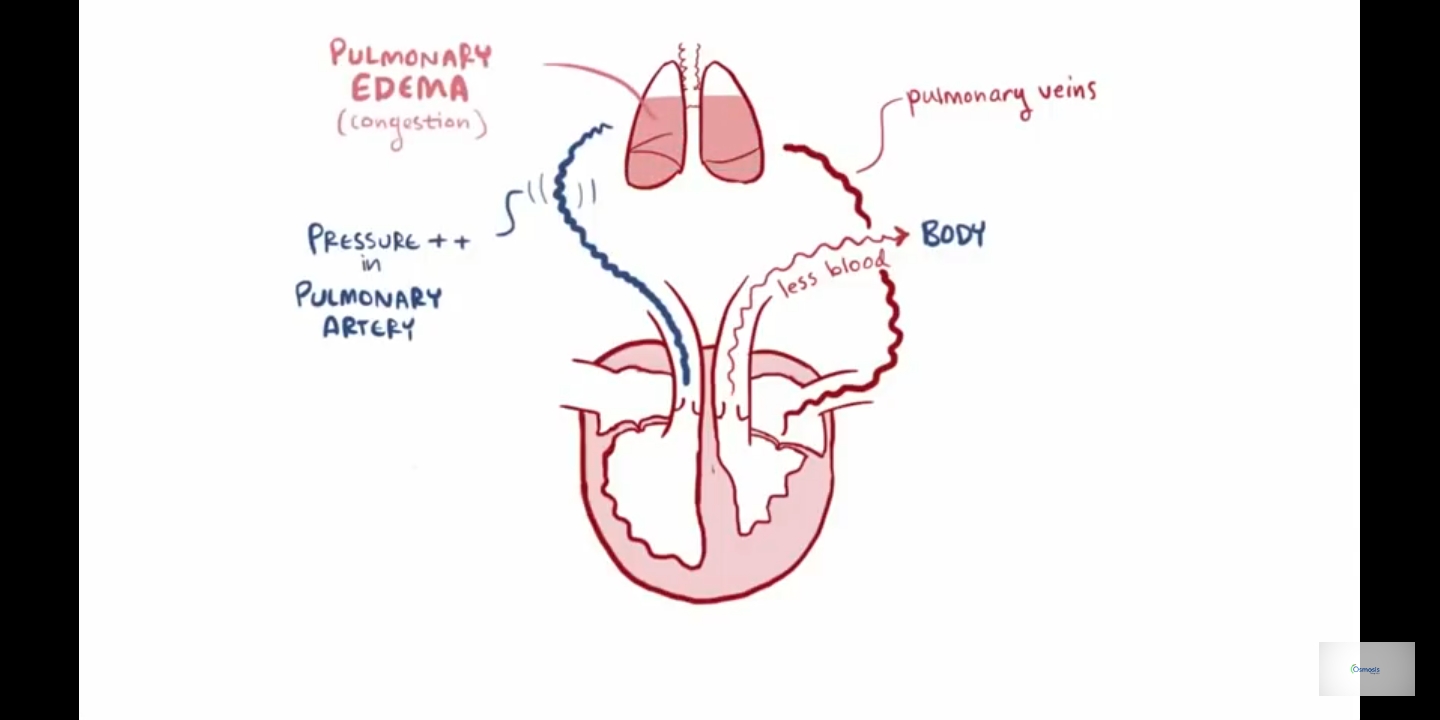 PULMONARY
EDEMA
(congestion)
pulmonary veins
PRESSURE ++
in
PULMONARY
ARTERY
BODY
less blood
Osmosis